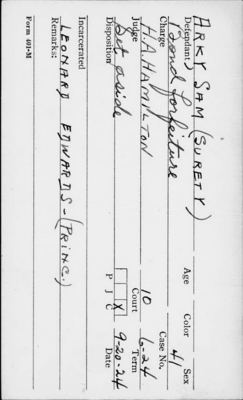 ARKY SAM (SURETY)
Defendant Age Color Sex
Bond forfeiture 41
Charge Case No.
H.A. HAMILTON 10 6-24
Judge Court Term
Set aside X 9-20-24
Disposition P J C Date
Incarcerated
Remarks:
LEONARD EDWARDS - (PRINC.)
Form 401-M